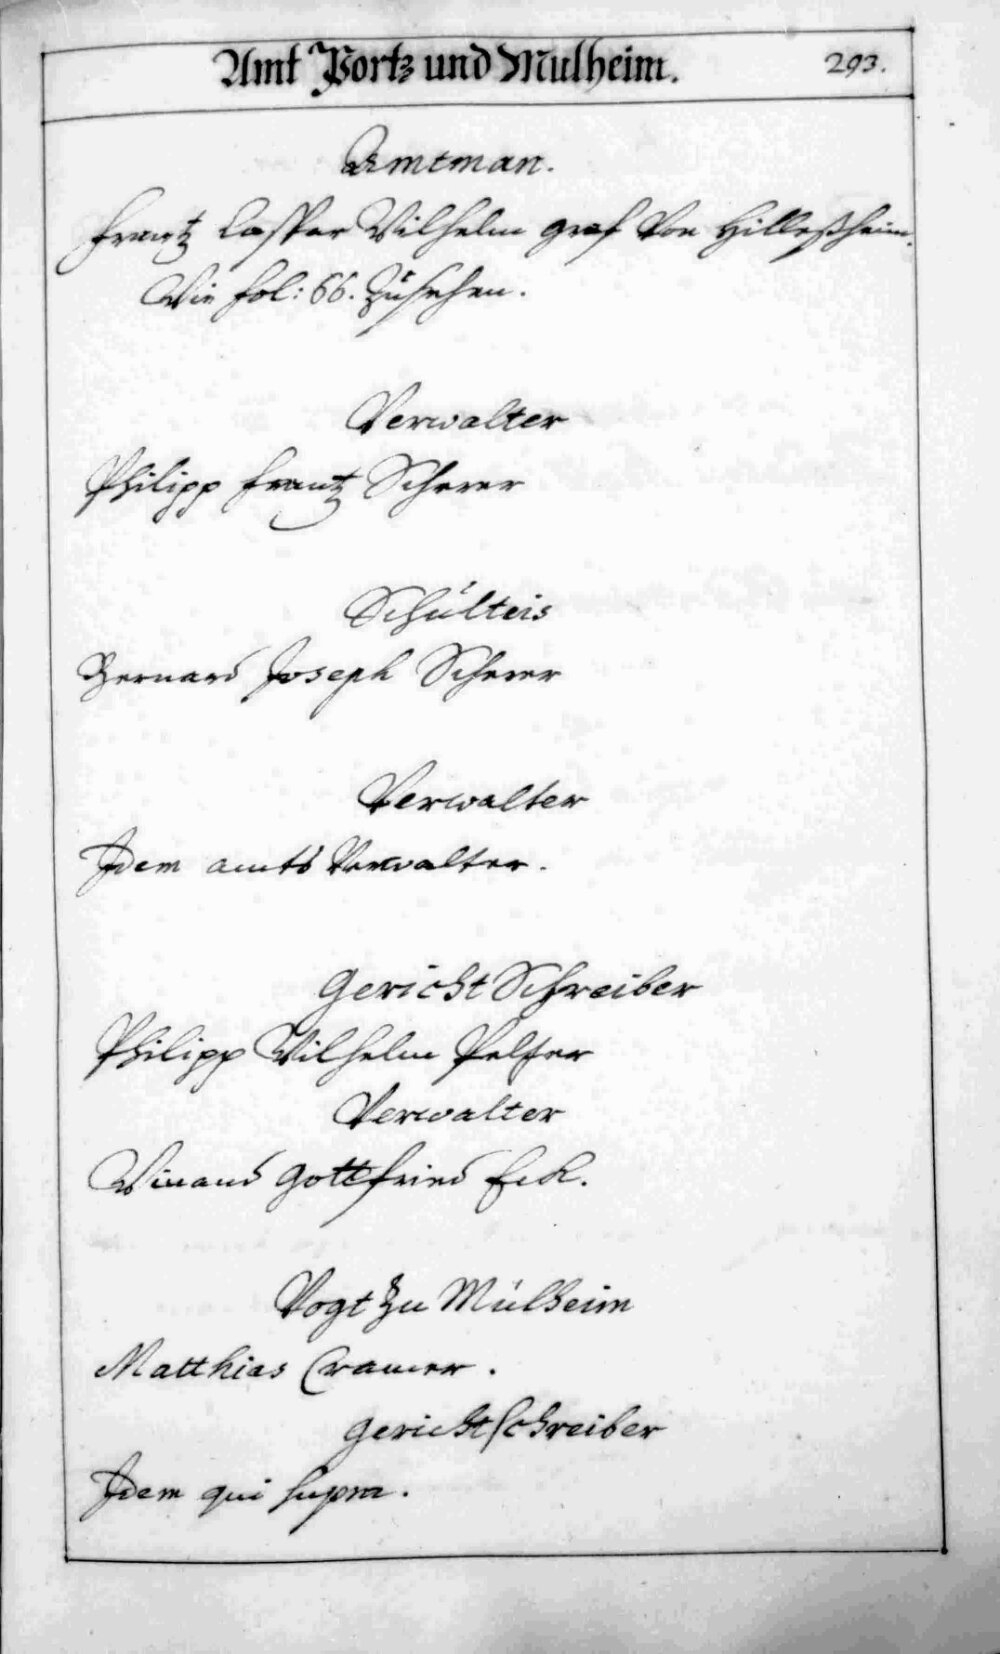 Amt Portz und Mulheim.
293.
Amtman.
Frantz Caspar Wilhelm graf Von Hilleßheim.
Wie fol: 66. Zusehen.
Verwalter
Philipp Frantz Scherer
Schulteis
Bernard Joseph Scherer
Verwalter
Idem amts Verwalter.
Gericht Schreiber
Philipp Wilhelm Pelser
Verwalter
Winand Gottfried Eck.
Vogt zu Mülheim
Matthias Cramer.
gerichtschreiber
Idem qui supra.